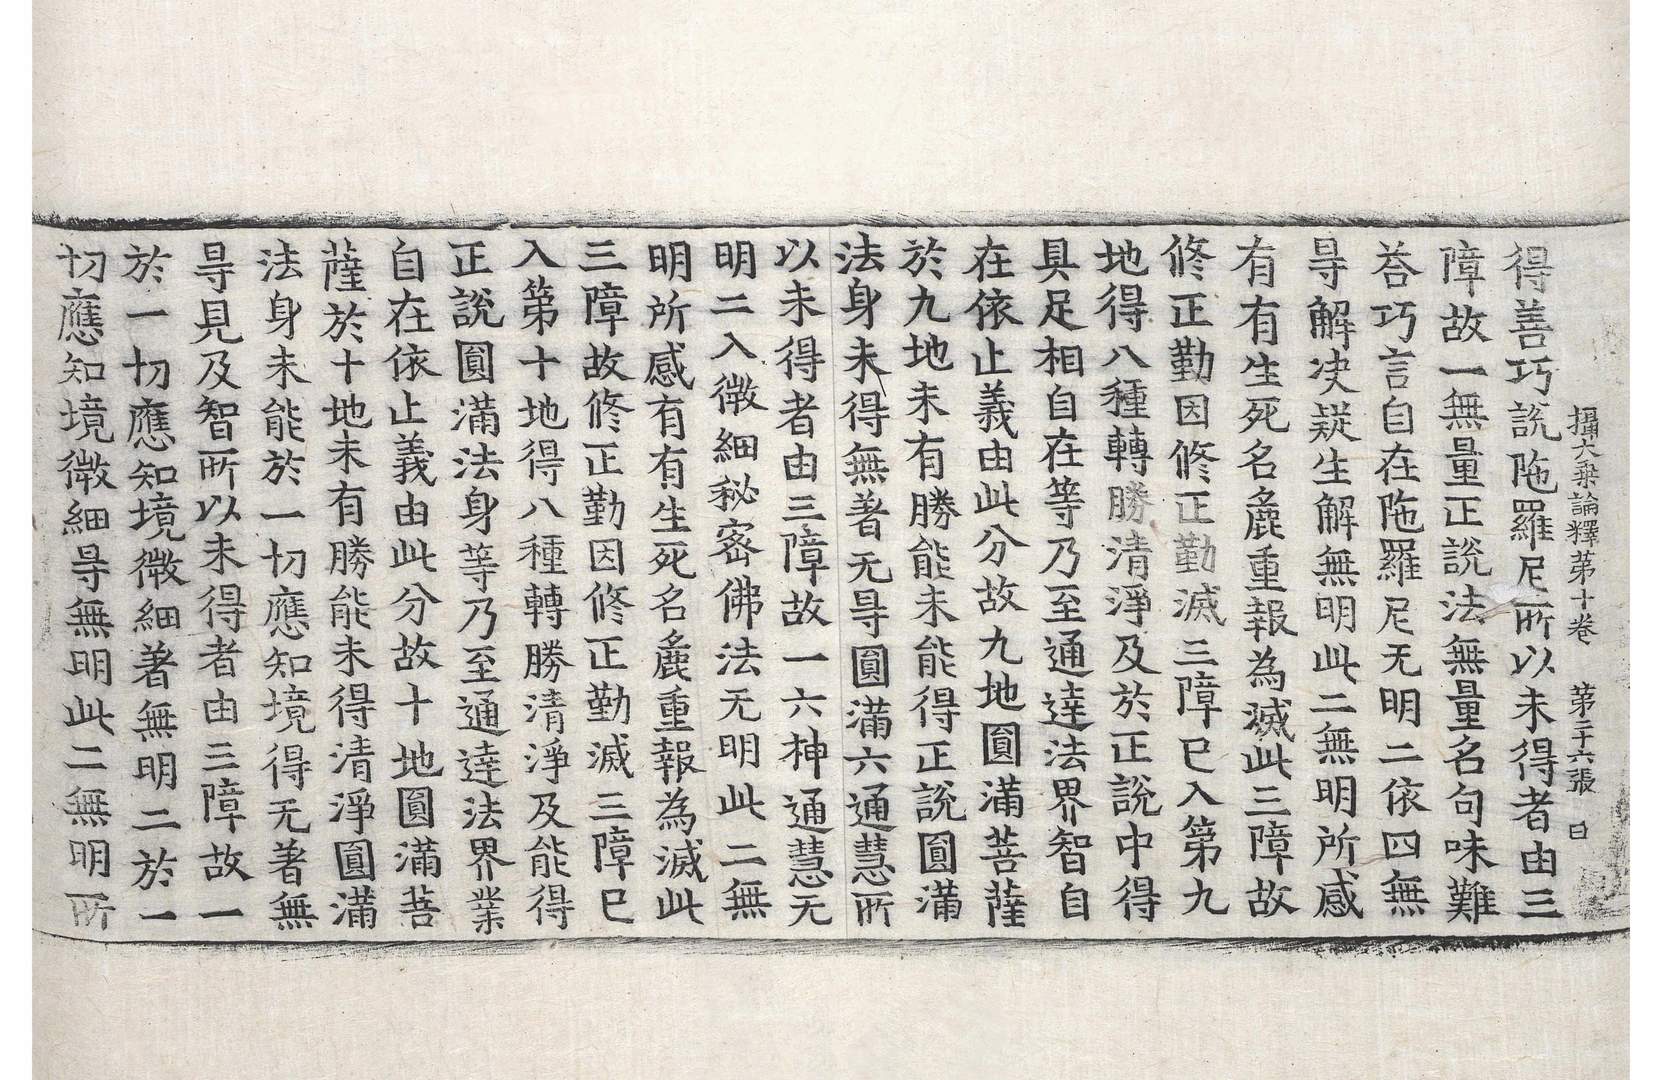 攝大乘論釋第十卷　第二十六張　曰
得善巧說陁羅尼所以未得者由三
障故一無量正說法無量名句味難
荅巧言自在陁羅尼无明二依四無
㝵解决疑生解無明此二無明所感
有有生死名麁重報為滅此三障故
修正勤因修正勤滅三障已入第九
地得八種轉勝清淨及於正說中得
具足相自在等乃至通達法界智自
在依止義由此分故九地圓滿菩薩
於九地未有勝能未能得正說圓滿
法身未得無著无㝵圓滿六通慧所
以未得者由三障故一六神通慧无
明二入微細秘密佛法无明此二無
明所感有有生死名麁重報為滅此
三障故修正勤因修正勤滅三障已
入第十地得八種轉勝清淨及能得
正說圓滿法身等乃至通達法界業
自在依止義由此分故十地圓滿菩
薩於十地未有勝能未得清淨圓滿
法身未能於一切應知境得无著無
㝵見及智所以未得者由三障故一
於一切應知境微細著無明二於一
切應知境微細㝵無明此二無明所